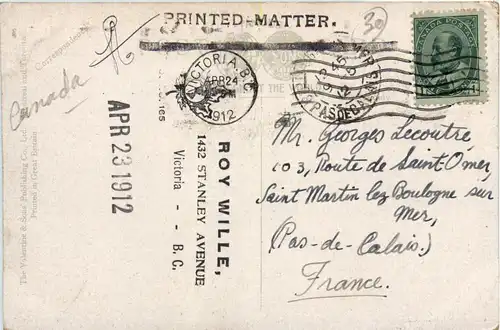 PRINTED-MATTER.
30
Canada
Correspondence
The Valentine & Sons Publishing Co., Ltd.
Printed in Great Britain
APR 23 1912
VICTORIA, B.C.
APR 24
1912
ROY WILLE,
1432 STANLEY AVENUE
Victoria - - B. C.
PAS DE CALAIS
CANADA POSTAGE
Mr. Georges Lecoutre
103, Route de Saint-Omer,
Saint Martin lez Boulogne sur
Mer,
(Pas-de-Calais.)
France.